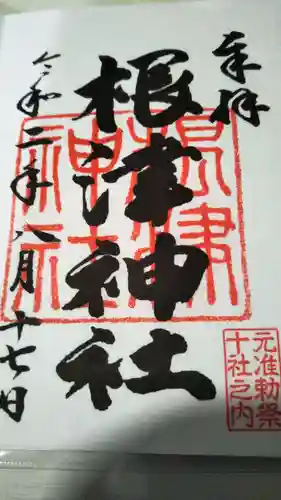 奉拝
根津神社
令和二年八月十七日
根津
神社
元准勅祭
十社之内